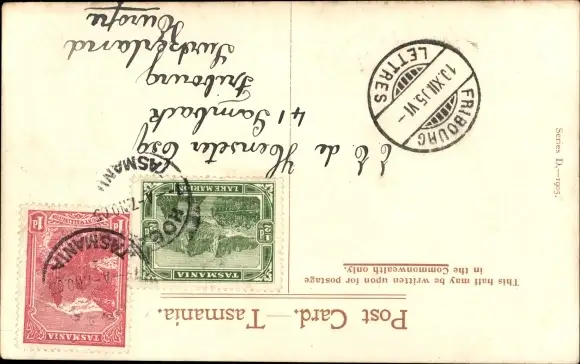 Post Card.—Tasmania.
This half may be written upon for postage
in the Commonwealth only.
Series D.—1905.
TASMANIA
½d
½d
LAKE MARION
TASMANIA
1d
1d
HOBART
TASMANIA
TASMANIA
FRIBOURG
10.XII.05.VI–
LETTRES
de
Esq
41 Lambach
Fribourg
Switzerland
Europe